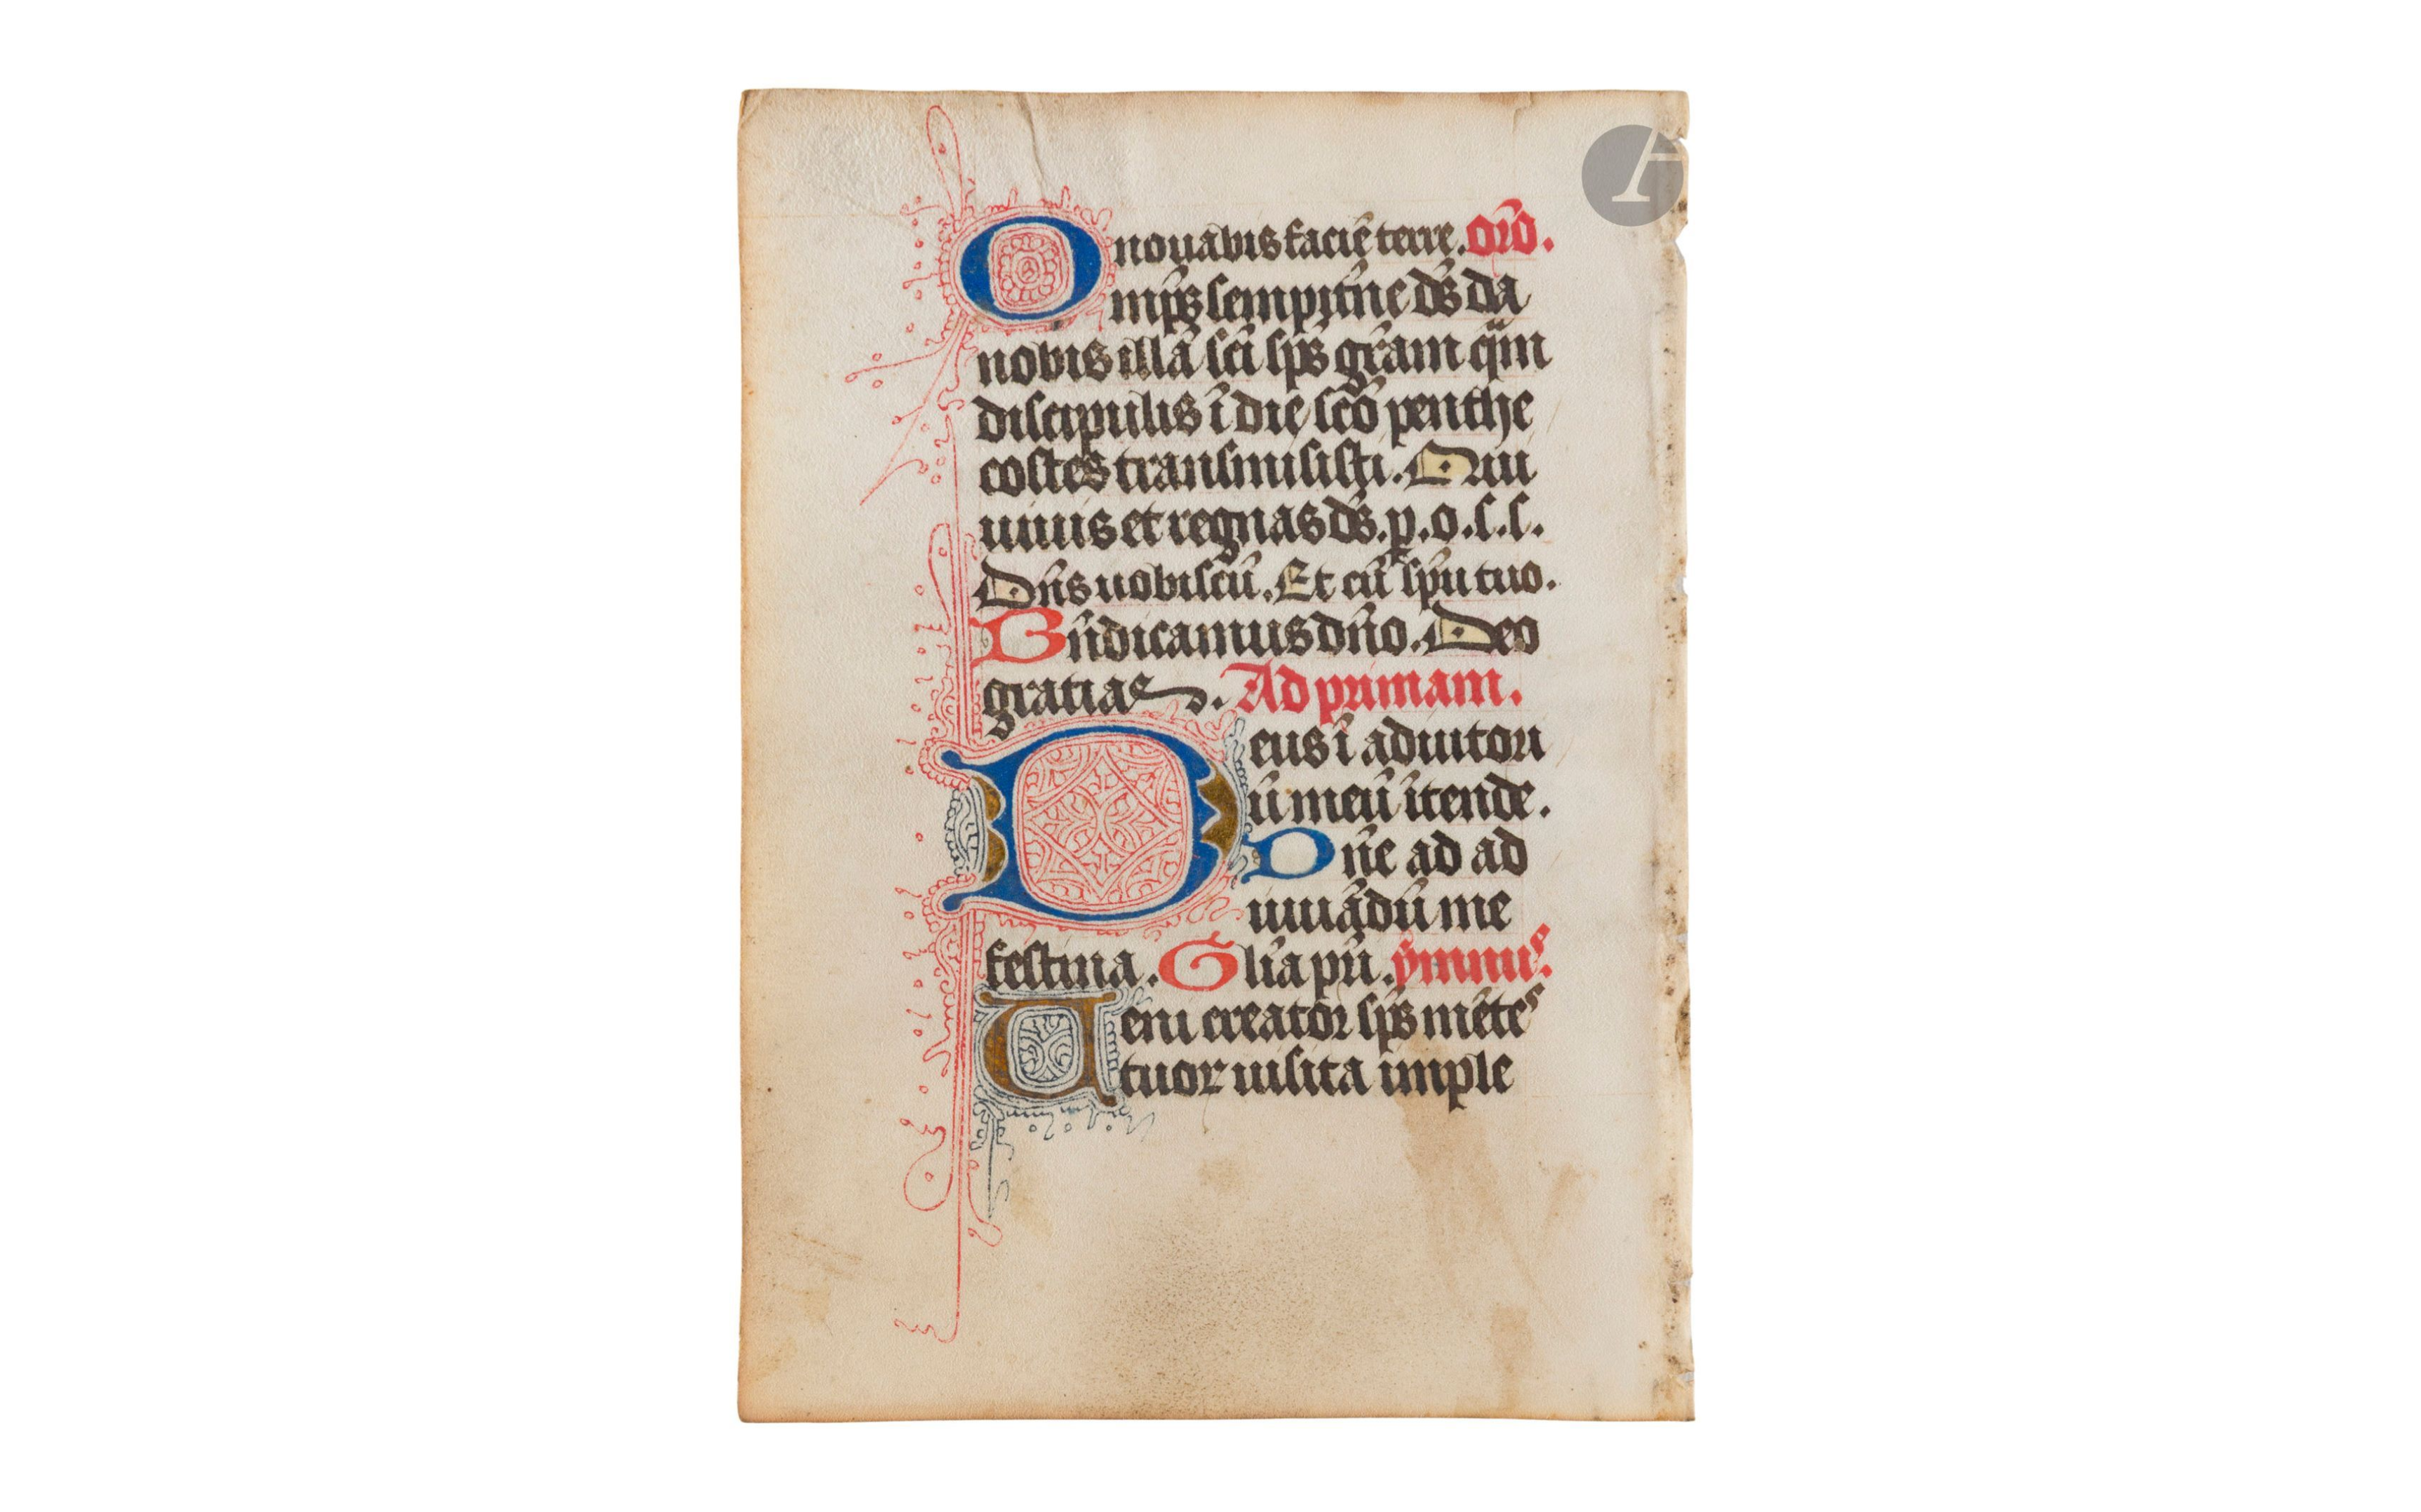 nouabis faciē terre. Orō.
Omp̄s sempit̄ne dS da
nobis illā sc̄i sp̄s gr̄am q̄m
discipulis ī die sc̄o penthe
costes transmisisti. Qui
uiuis et regnas ds. p. o. s. s.
Dn̄s uobiscū. Et cū sp̄u tuo.
Bn̄dicamus dn̄o. Deo
gratias. Ad primam.
Deus ī adiutori
ū meū ītende.
Dn̄e ad ad
iuuādū me
festina. Gl̄ia pr̄i. ymnus.
Ueni creator sp̄s mētes
tuor uisita imple